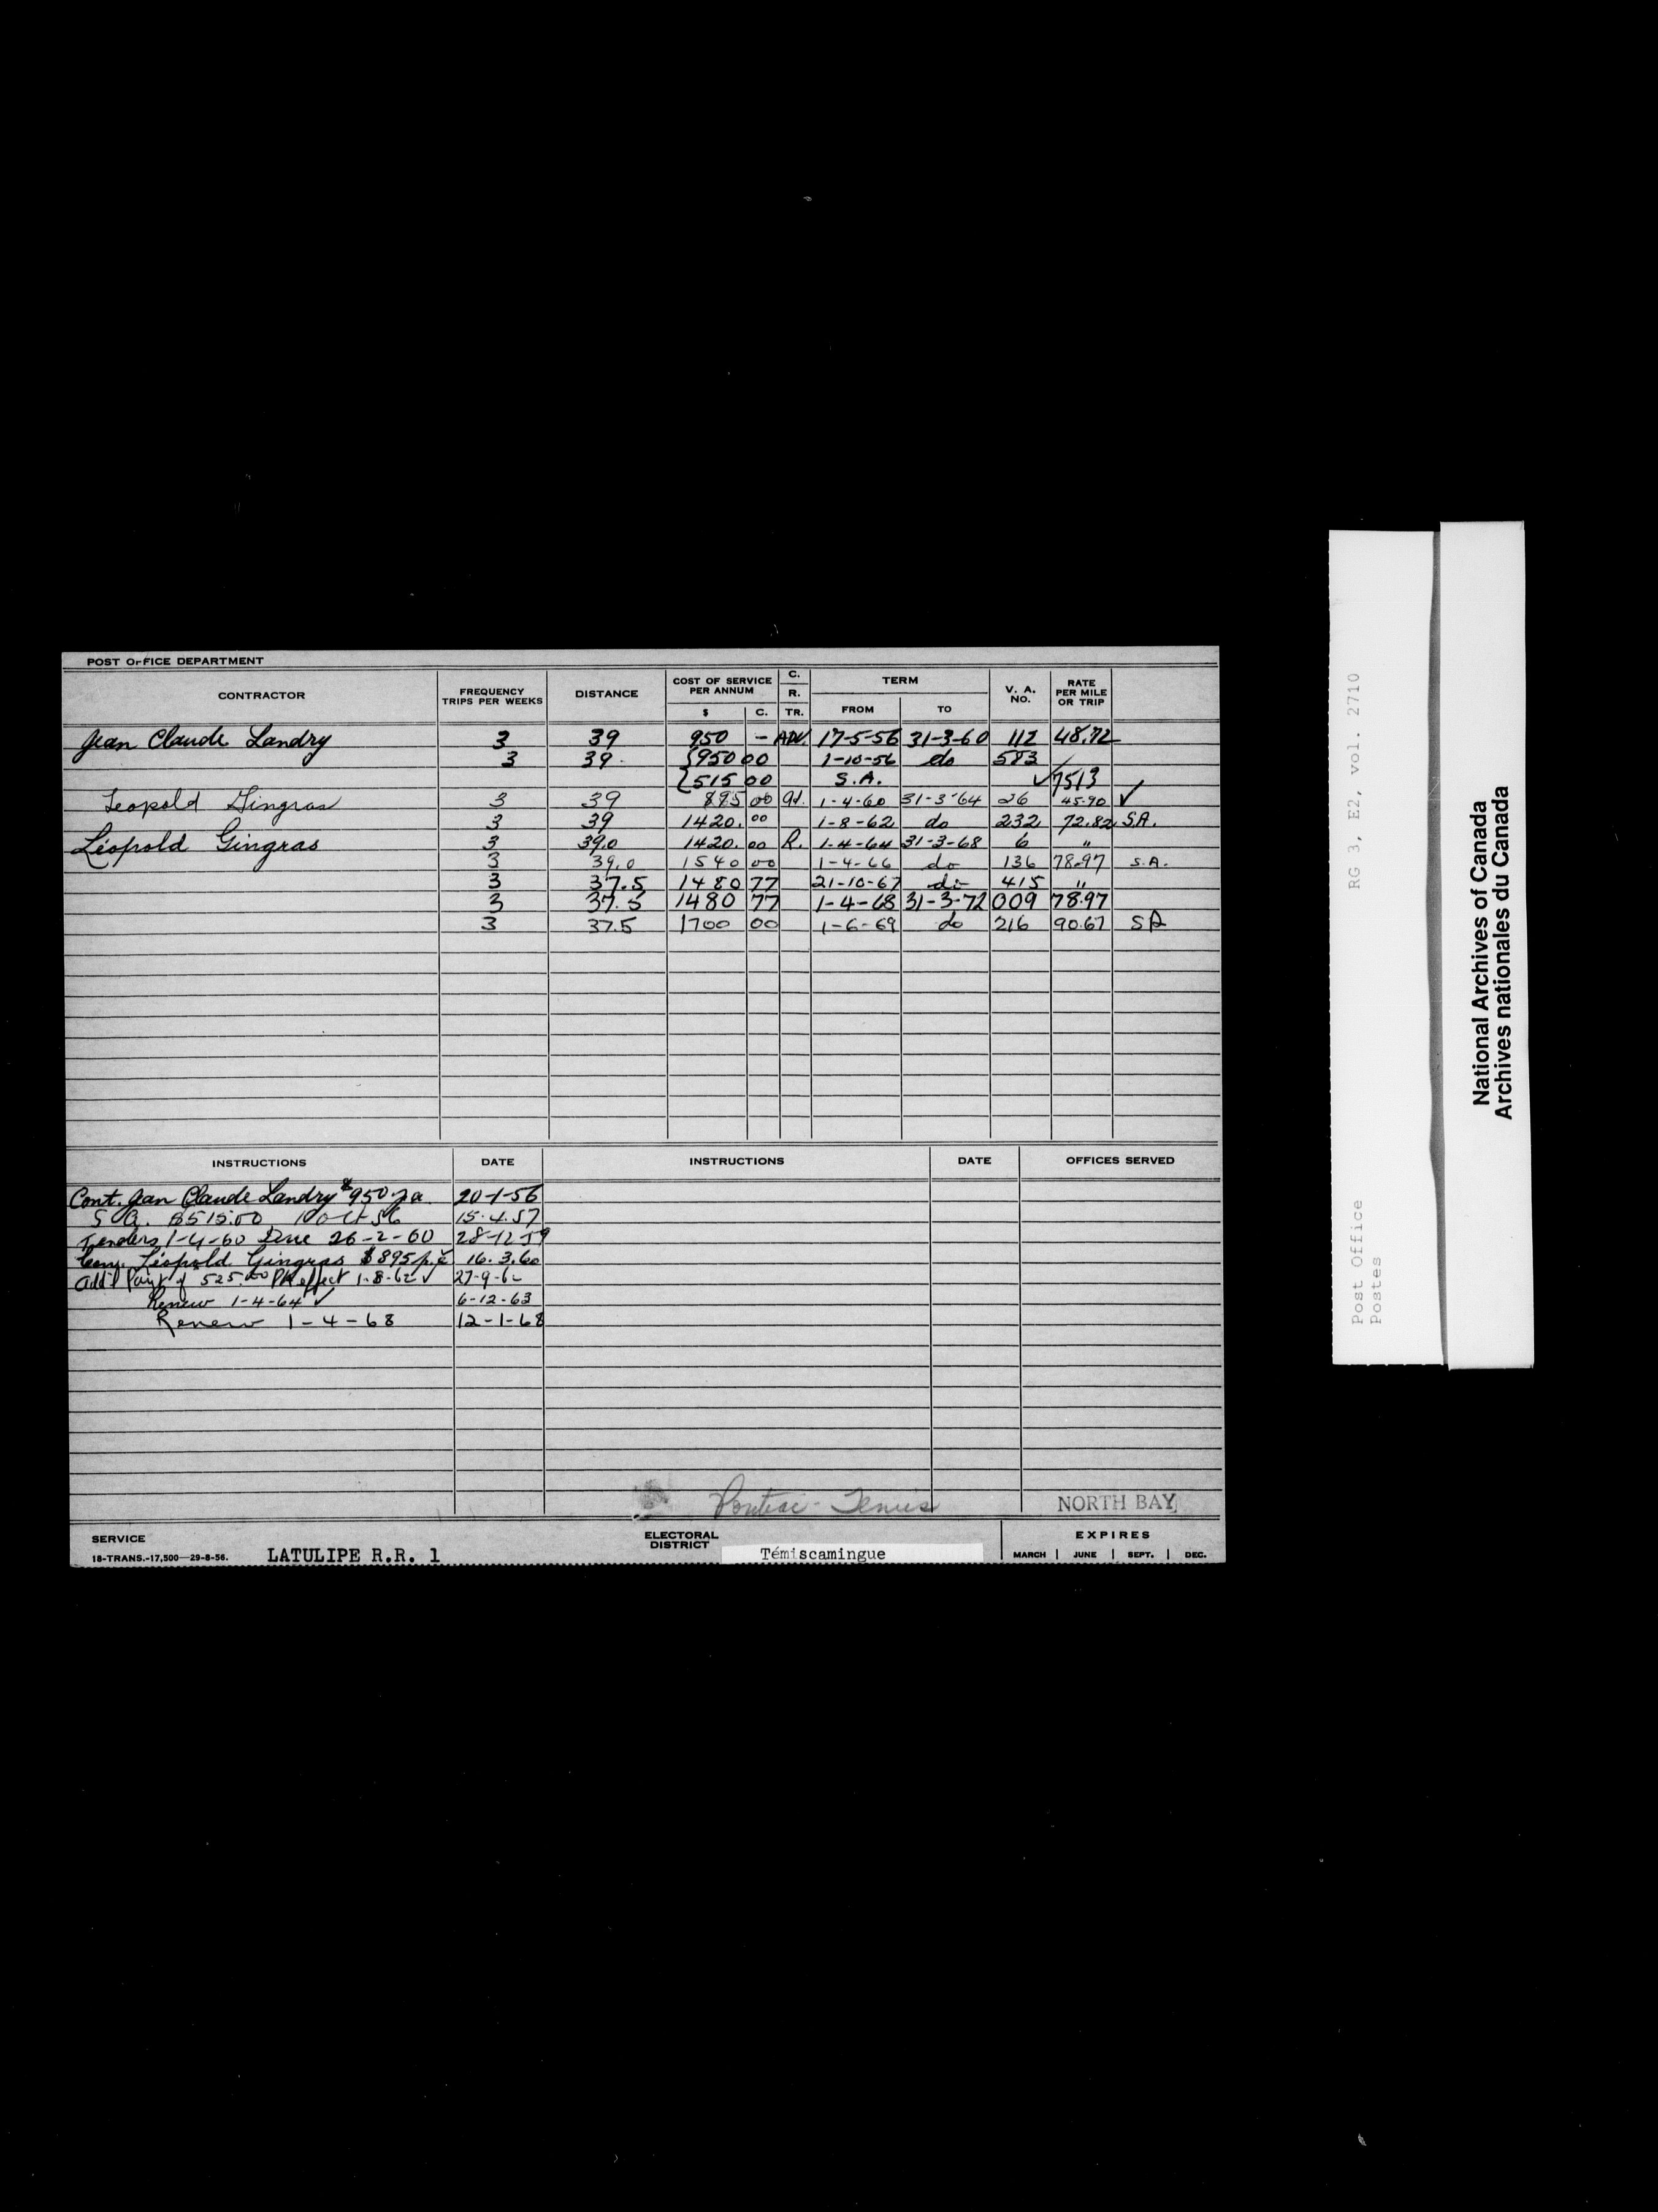 POST OFFICE DEPARTMENT
CONTRACTOR FREQUENCY TRIPS PER WEEKS DISTANCE COST OF SERVICE PER ANNUM $ C. C. R. TR. TERM FROM TO V. A. NO. RATE PER MILE OR TRIP
Jean Claude Landry 3 39 950 – ADV. 17-5-56 31-3-60 112 48.72
3 39 {950 00 1-10-56 do 583
{515 00 S.A. ✓7513
Leopold Gingras 3 39 895 00 ad. 1-4-60 31-3-64 26 45.90 ✓
3 39 1420. 00 1-8-62 do 232 72.82 S.A.
Léopold Gingras 3 39.0 1420. 00 R. 1-4-64 31-3-68 6 "
3 39.0 1540 00 1-4-66 do 136 78.97 S.A.
3 37.5 1480 77 21-10-67 do 415 "
3 37.5 1480 77 1-4-68 31-3-72 009 78.97
3 37.5 1700 00 1-6-69 do 216 90.67 SA
INSTRUCTIONS DATE INSTRUCTIONS DATE OFFICES SERVED
Cont. Jean Claude Landry $950 pa 20-1-56
S.A. $515.00 1 Oct 56 15.4.57
Tenders 1-4-60 Due 26-2-60 28-12-59
Léopold Gingras $895 p.a 16.3.60
Add'l Paymt of 525.00 PA effect 1-8-62 ✓ 27-9-62
Renew 1-4-64 ✓ 6-12-63
Renew 1-4-68 12-1-68
Pontiac - Temis
NORTH BAY
SERVICE LATULIPE R.R. 1 ELECTORAL DISTRICT Témiscamingue EXPIRES
18-TRANS.-17,500—29-8-56. MARCH | JUNE | SEPT. | DEC.
Post Office RG 3, E2, vol. 2710
Postes
National Archives of Canada
Archives nationales du Canada